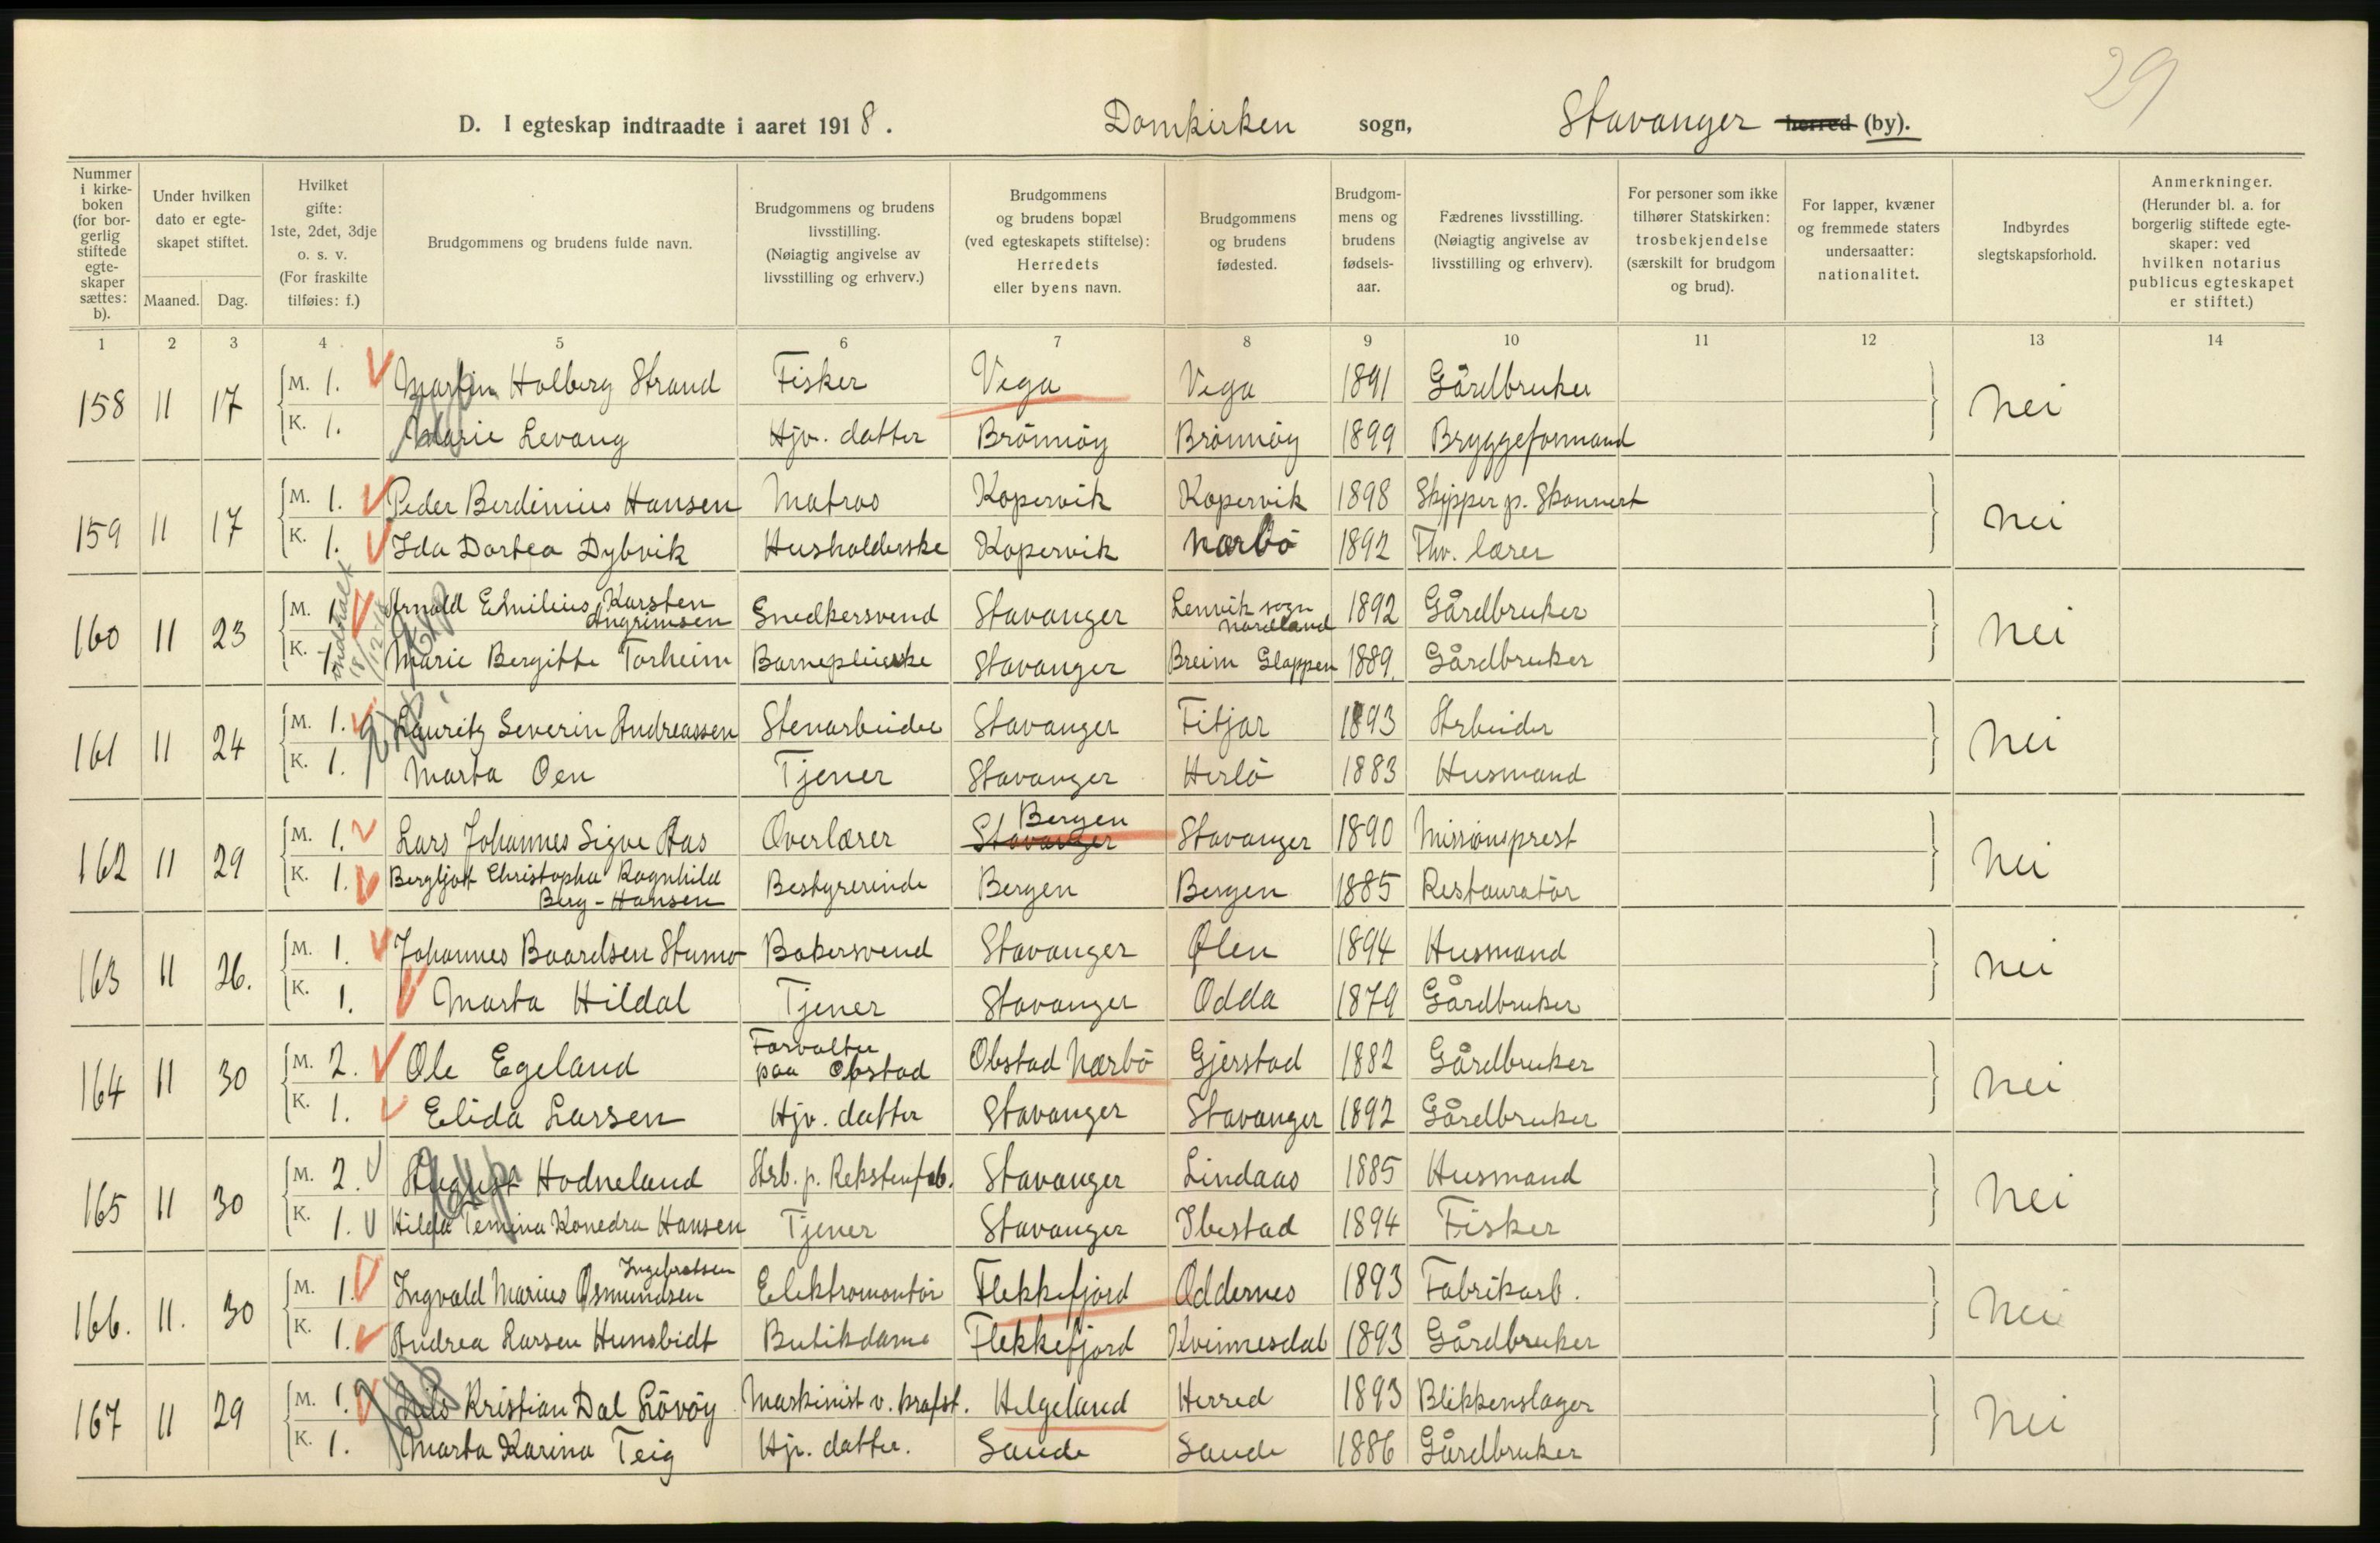 29
D. I egteskap indtraadte i aaret 1918. Domkirken sogn, Stavanger herred (by).
Nummer i kirke-boken (for bor-gerlig stiftede egte-skaper sættes: b).
Under hvilken dato er egte-skapet stiftet.
Maaned. Dag.
Hvilket gifte: 1ste, 2det, 3dje o. s. v. (For fraskilte tilføies: f.)
Brudgommens og brudens fulde navn.
Brudgommens og brudens livsstilling. (Nøiagtig angivelse av livsstilling og erhverv.)
Brudgommens og brudens bopæl (ved egteskapets stiftelse): Herredets eller byens navn.
Brudgommens og brudens fødested.
Brudgom-mens og brudens fødsels-aar.
Fædrenes livsstilling. (Nøiagtig angivelse av livsstilling og erhverv).
For personer som ikke tilhører Statskirken: trosbekjendelse (særskilt for brudgom og brud).
For lapper, kvæner og fremmede staters undersaatter: nationalitet.
Indbyrdes slegtskapsforhold.
Anmerkninger. (Herunder bl. a. for borgerlig stiftede egte-skaper: ved hvilken notarius publicus egteskapet er stiftet.)
1 2 3 4 5 6 7 8 9 10 11 12 13 14
158 11 17 M. 1. Martin Holberg Strand Fisker Vega Vega 1891 Gårdbruker Nei
K. 1. Marie Levang Hjv. datter Brönnöy Brönnöy 1899 Bryggeformand
159 11 17 M. 1. Peder Berdinius Hansen Matros Kopervik Kopervik 1898 Skipper p. Skonnert Nei
K. 1. Ida Dortea Dybvik Husholderske Kopervik Nærbö 1892 Fhv. lærer
160 11 23 M. 1. Arnold Emilius Karsten Angrimsen Snedkersvend Stavanger Lenvik sogn Nordland 1892 Gårdbruker Nei
K. 1. Marie Bergitte Torheim Barnepleierske Stavanger Breim Gloppen 1889. Gårdbruker
161 11 24 M. 1. Lauritz Severin Andreassen Stenarbeider Stavanger Fitjar 1893 Arbeider Nei
K. 1. Marta Oen Tjener Stavanger Herlö 1883 Husmand
162 11 29 M. 1. Lars Johannes Sigve Aas Overlærer Stavanger Bergen Stavanger 1890 Missionsprest Nei
K. 1. Bergljot Christopha Ragnhild Berg-Hansen Bestyrerinde Bergen Bergen 1885 Restauratör
163 11 26. M. 1. Johannes Baardsen Stumo Bakersvend Stavanger Ølen 1894 Husmand Nei
K. 1. Marta Hildal Tjener Stavanger Odda 1879 Gårdbruker
164 11 30 M. 2. Ole Egeland Forvalter paa Obstad Obstad Nærbö Gjerstad 1882 Gårdbruker Nei
K. 1. Elida Larsen Hjv. datter Stavanger Stavanger 1892 Gårdbruker
165 11 30 M. 2. August Hodneland Arb. p. Rekstenfab. Stavanger Lindaas 1885 Husmand Nei
K. 1. Hilda Temina Konedra Hansen Tjener Stavanger Ibestad 1894 Fisker
166. 11. 30 M. 1. Ingvald Marius Osmundsen Ingebretsen Elektromontör Flekkefjord Oddernes 1893 Fabrikarb. Nei
K. 1. Andrea Larsen Hunsbidt Butikdame Flekkefjord Kvinnesdal 1893 Gårdbruker
167 11 29 M. 1. Nils Kristian Dal Lövöy Maskinist v. krafst. Helgeland Herred 1893 Blikkenslager Nei
K. 1. Marta Karina Teig Hjv. datter. Sande Sande 1886 Gårdbruker